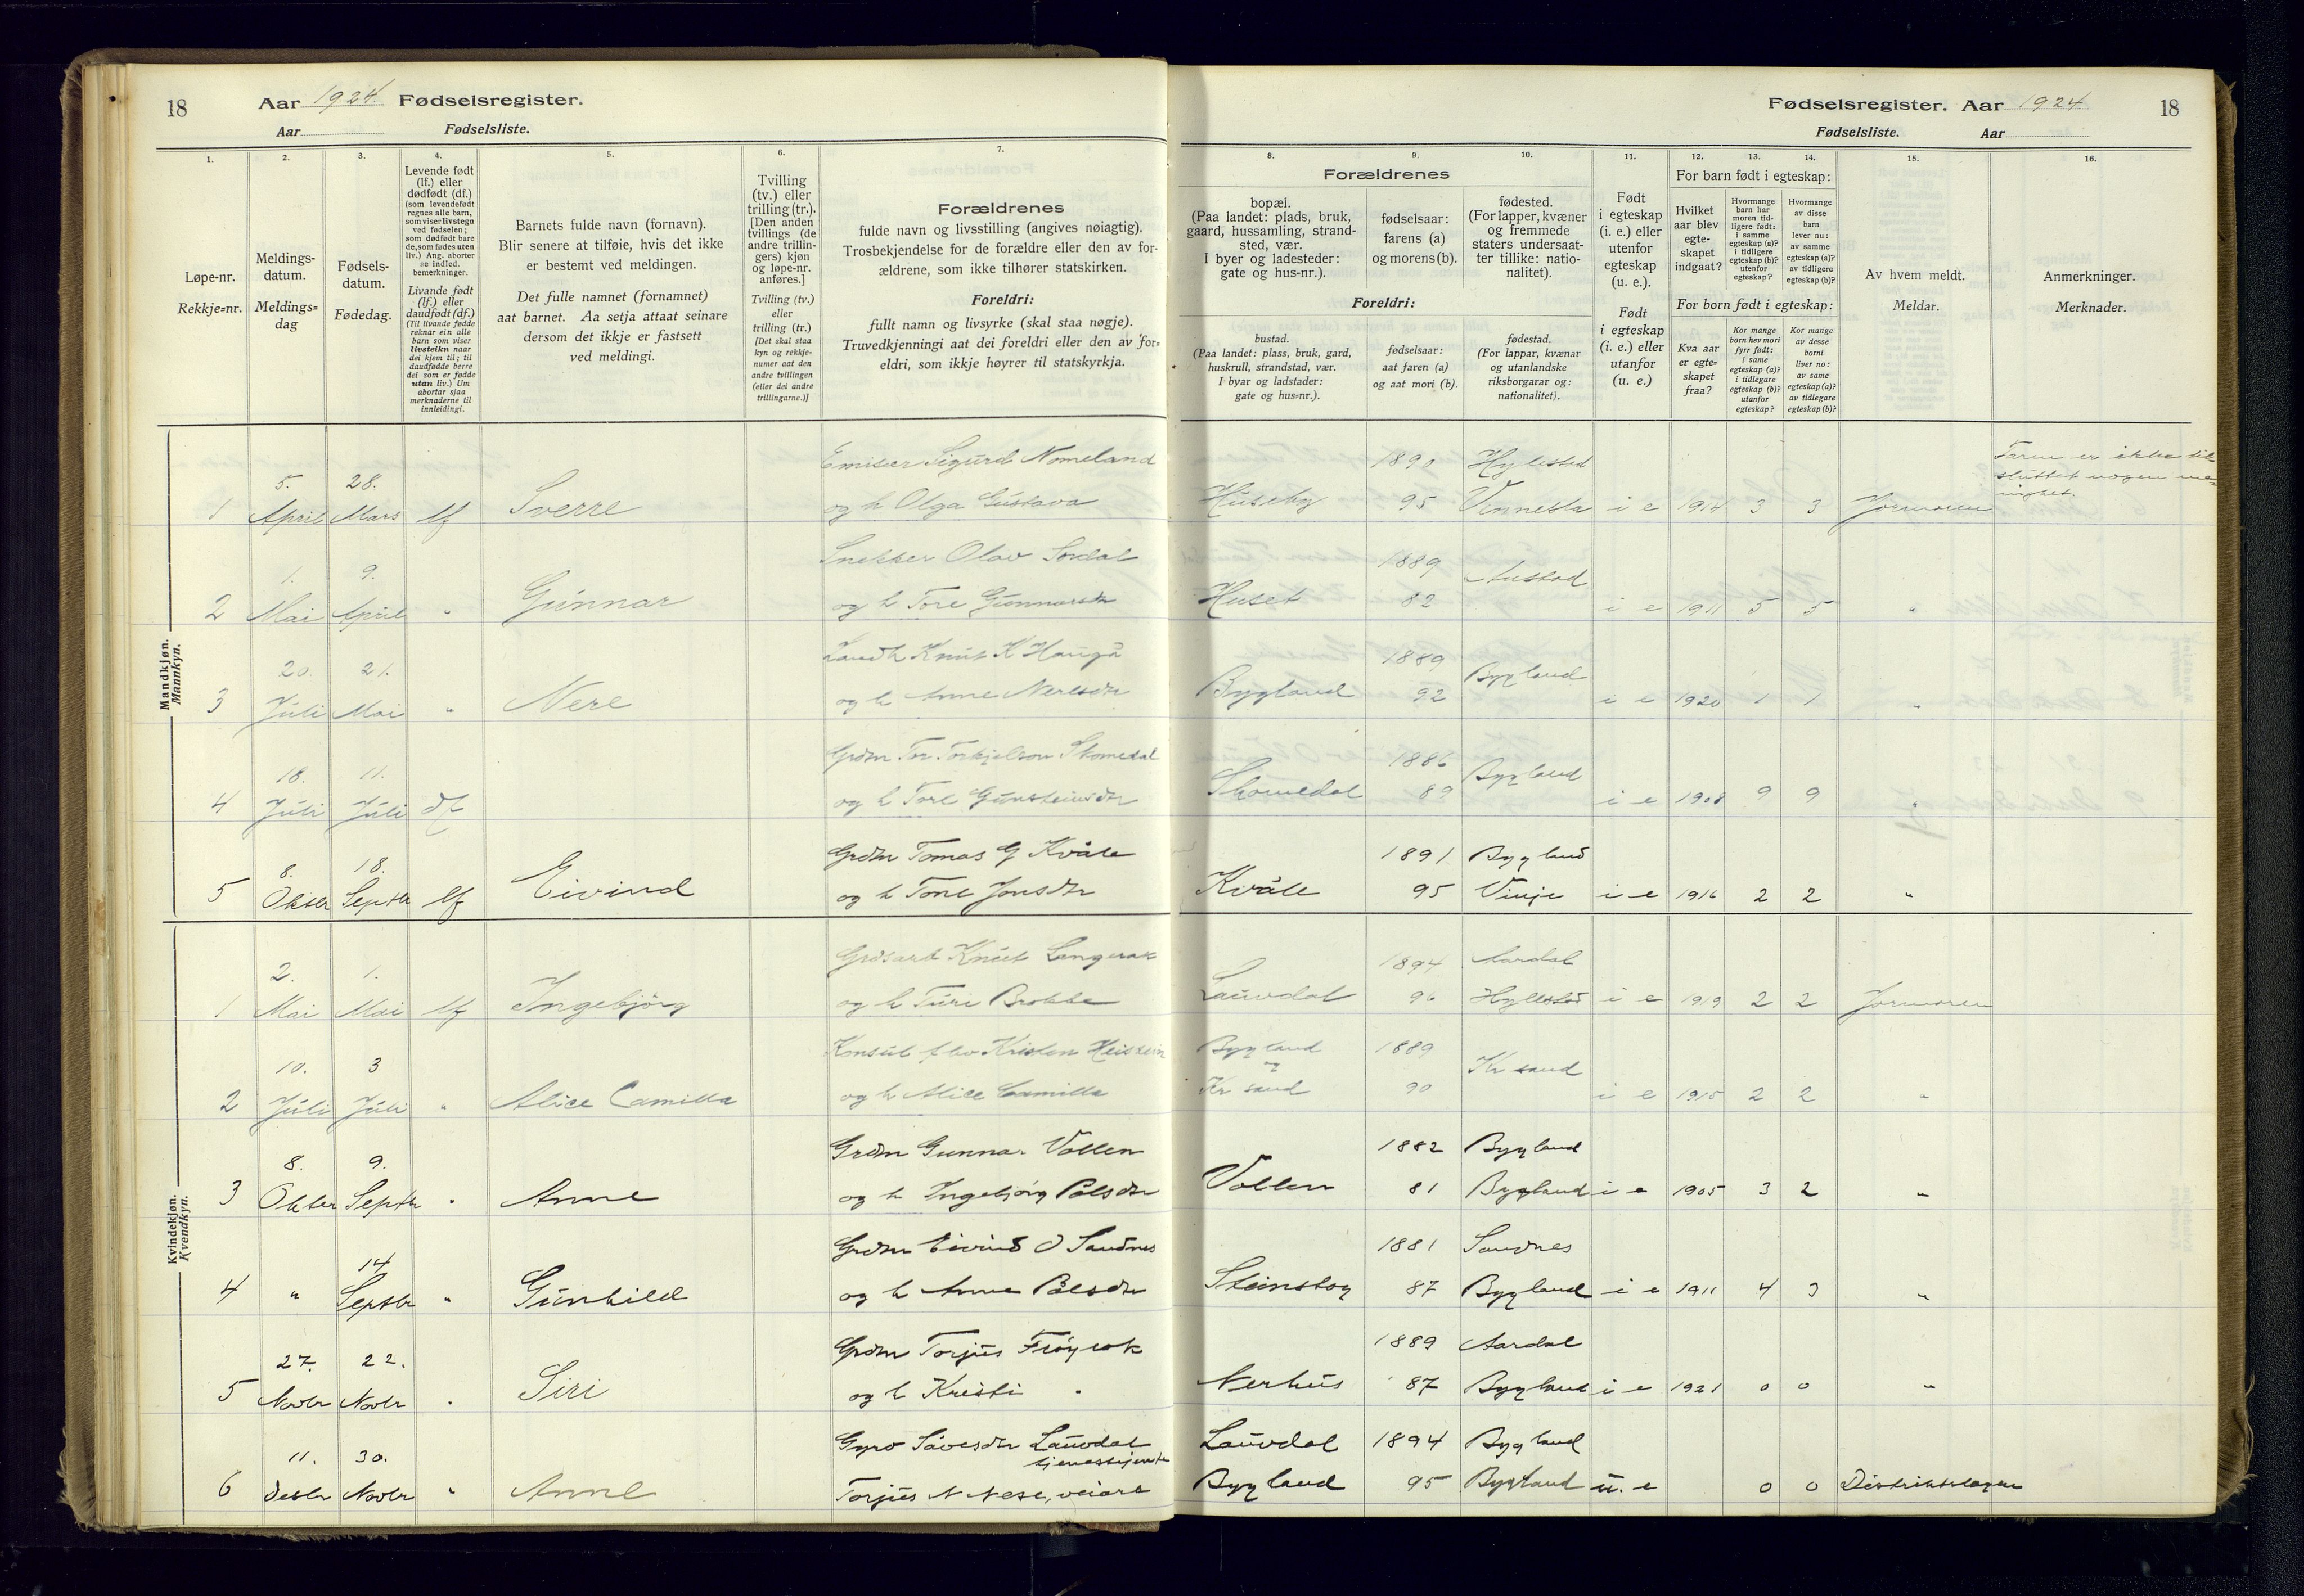 18
Aar 1924. Fødselsregister.
Aar Fødselsliste.
Fødselsregister. Aar 1924
18
Fødselsliste. Aar
1.
2.
3.
4.
5.
6.
7.
Løpe-nr.
Rekkje=nr.
Meldings-
datum.
Meldings=
dag
Fødsels-
datum.
Fødedag.
Levende født
(lf.) eller
dødfødt (df.)
(som levendefødt
regnes alle barn,
som viser livstegn
ved fødselen;
som dødfødt bare
de, som fødes uten
liv.) Ang. aborter
se indled.
bemerkninger.
Livande født
(lf.) eller
daudfødt (df.)
(Til livande fødde
reknar ein alle
barn som viser
livsteikn naar
dei kjem til; til
daudfødde berre
dei som er fødde
utan liv.) Um
abortar sjaa
merknaderne til
innleidingi.
Barnets fulde navn (fornavn).
Blir senere at tilføie, hvis det ikke
er bestemt ved meldingen.
Det fulle namnet (fornamnet)
aat barnet. Aa setja attaat seinare
dersom det ikkje er fastsett
ved meldingi.
Tvilling
(tv.) eller
trilling (tr.).
[Den anden
tvillings (de
andre trillin-
gers) kjøn
og løpe-nr.
anføres.]
Tvilling (tv.)
eller
trilling (tr.)
[Det skal staa
kyn og rekkje-
numer aat den
andre tvillingen
(eller dei andre
trillingarne.)]
Forældrenes
fulde navn og livsstilling (angives nøiagtig).
Trosbekjendelse for de forældre eller den av for-
ældrene, som ikke tilhører statskirken.
Foreldri:
fullt namn og livsyrke (skal staa nøgje).
Truvedkjenningi aat dei foreldri eller den av for=
eldri, som ikkje høyrer til statskyrkja.
8.
9.
10.
11.
12.
13.
14.
15.
16.
Forældrenes
bopæl.
(Paa landet: plads, bruk,
gaard, hussamling, strand-
sted, vær.
I byer og ladesteder:
gate og hus-nr.).
fødselsaar:
farens (a)
og morens (b).
fødested.
(For lapper, kvæner
og fremmede
staters undersaat-
ter tillike: natio-
nalitet).
Foreldri:
bustad.
(Paa landet: plass, bruk, gard,
huskrull, strandstad, vær.
I byar og ladstader:
gate og hus=nr.).
fødselsaar:
aat faren (a)
og aat mori (b).
fødestad.
(For lappar, kvænar
og utanlandske
riksborgarar og:
nationalitet).
Født
i egteskap
(i. e.) eller
utenfor
egteskap
(u. e.).
Født
i egteskap
(i. e.) eller
utanfor
(u. e.)
For barn født i egteskap:
Hvilket
aar blev
egte-
skapet
indgaat?
Hvormange
barn har
moren tid-
ligere født:
i samme
egteskap (a)?
i tidligere
egteskap (b)?
utenfor
egteskap?
Hvormange
av disse
barn
lever nu:
av samme
egteskap (a)?
av tidligere
egteskap (b)?
For born født i egteskap:
Kva aar
er egte-
skapet
fraa?
Kor mange
born hev mori
fyrr født:
i same
egteskap (a)?
i tidlegare
egteskap (b)?
utanfor
egteskap?
Kor mange
av desse
borni
liver no:
av same
egteskap (a)?
av tidlegare
egteskap (b)?
Av hvem meldt.
Meldar.
Anmerkninger.
Merknader.
Mandkjøn.
Mannkyn.
1 5. April 28. Mars lf Sverre Emisær Sigurd Nomeland 1890 Hylestad
og h Olga Gustava Huseby 95 Vennesla i e 1914 3 3 Jormoren
Faren er ikke til-
sluttet nogen me-
nighet.
2 1. Mai 9. April " Gunnar Snekker Olav Sordal 1889 Austad
og h Tore Gunnarsdtr Huset 82 i e 1911 5 5 "
3 20. Juli 21. Mai " Nere Landh Knut K Haugå 1889 Bygland
og h Anne Neresdtr Bygland 92 i e 1920 1 1 "
4 18. Juli 11. Juli df Grdm Tor Torkjelson Skomedal 1886 Bygland
og h Tore Gunsteinsdtr Skomedal 89 i e 1908 9 9 "
5 8. Oktbr 18. Septbr lf Eivind Grdm Tomas G Kvåle 1891 Bygland
og h Tone Jonsdtr Kvåle 95 Vinje i e 1916 2 2 "
Kvindekjøn.
Kvendkyn.
1 2. Mai 1. Mai lf Ingebjörg Grdsarb Knut Langerak 1894 Aardal
og h Turi Brokke Lauvdal 96 Hyllestad i e 1919 2 2 Jormoren
2 10. Juli 3 Juli " Alice Camilla Konsul Kristen Heistein Bygland 1889
og h Alice Camilla og Kr sand 90 Kr sand i e 1915 2 2 "
3 8. Oktbr 9. Septbr " Anne Grdm Gunnar Vollen 1882 Bygland
og h Ingebjörg Pålsdtr Vollen 81 Bygland i e 1905 3 2 "
4 " 14 Septbr " Gunhild Grdm Eivind O Sandnes 1881 Sandnes
og h Anne Pålsdtr Steinslog 87 Bygland i e 1911 4 3 "
5 27. Novbr 22. Novbr " Siri Grdm Torjus Fröyrak 1889 Aardal
og h Kristi " Nerhus 87 Bygland i e 1921 0 0 "
6 11. Desbr 30. Novbr " Anne Gyro Såvesdtr Lauvdal Lauvdal 1894 Bygland
tjenestejente
Torjus N Nese, veiarb Bygland 95 Bygland u. e 0 0 Distriktslægen